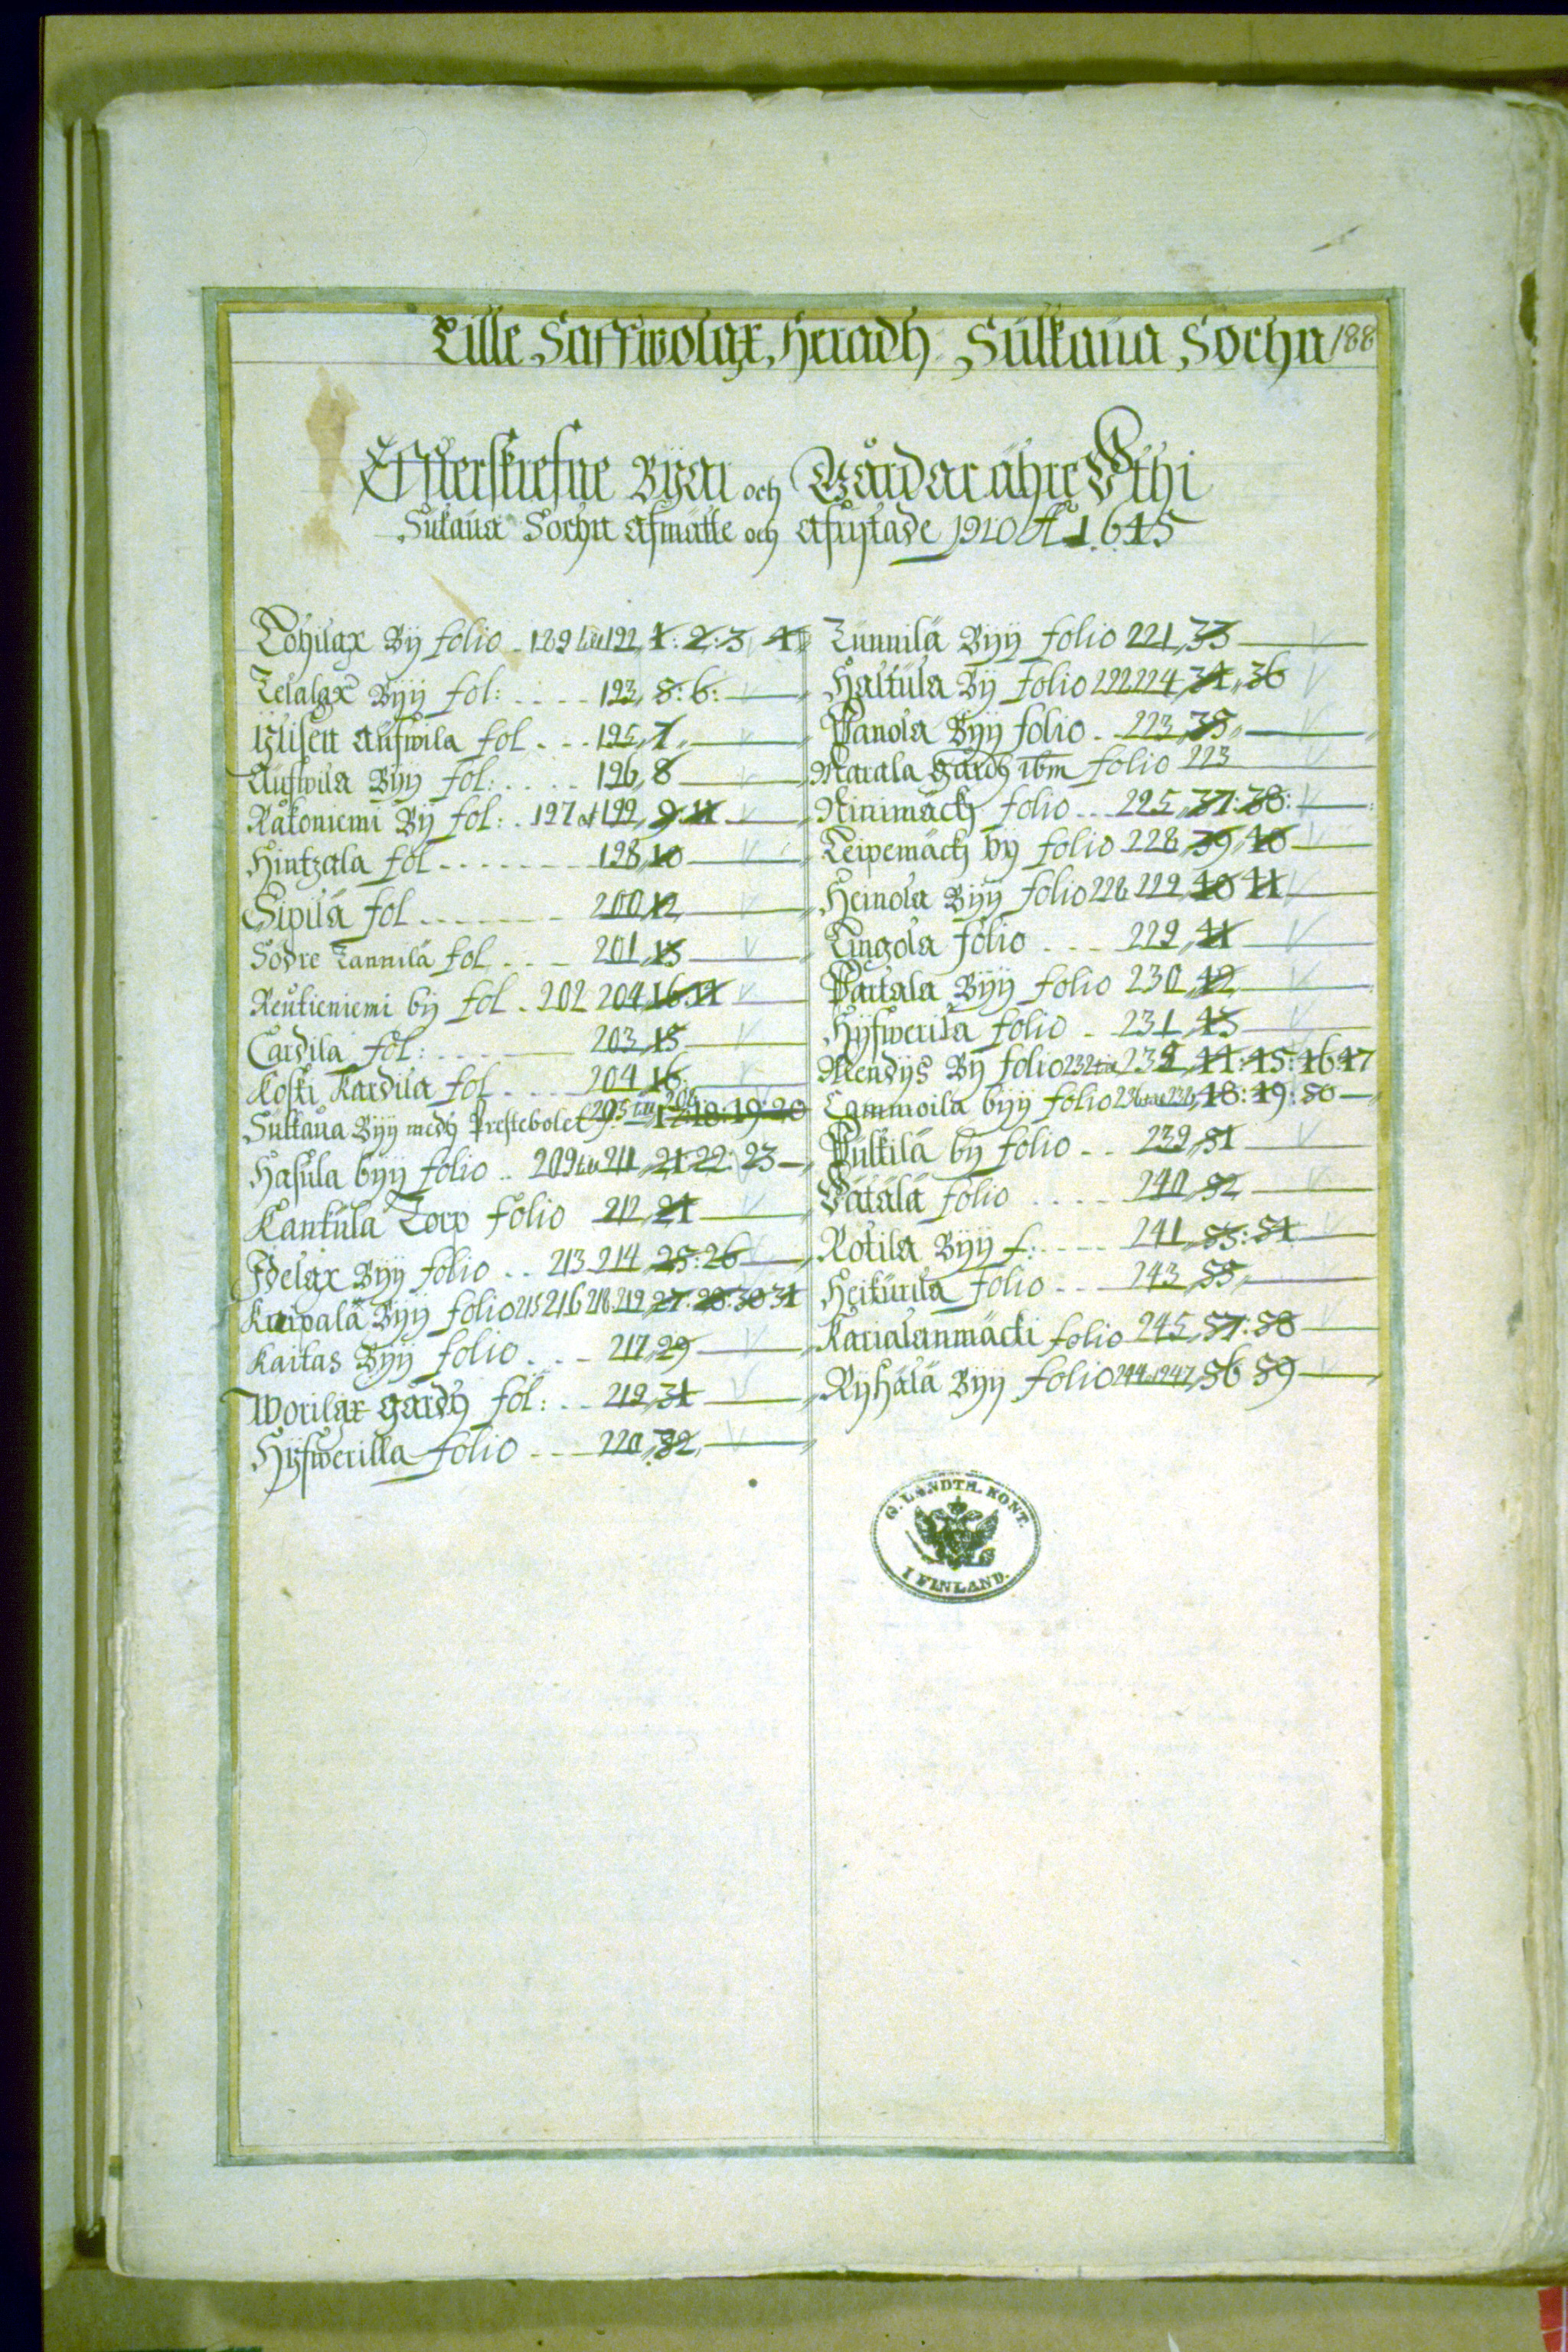 Lille Saffwolax Heradh Sulkaua Sochn 188
Effterskrefne Byar och Gårdar ähre Uthi
Sulkaua Sochn afmätte och afrytade 1910 A 1645
Tohilax By folio 189 till 192, 1: 2: 3, 4
Telalax Byy fol: 193, 5: 6:
Ylisen Aufwila fol 195, 7
Aufwila Byy fol: 196, 8
Rakoniemi By fol: 197 et 199, 9: 11
Hintzala fol 198, 10
Sipilä fol 200, 12
Södre Tannilä fol 201, 13
Reutieniemi by fol 202 204, 16. 14
Cardila fol: 203, 15
Koski Kardila fol 204 16
Sulkaua Byy medh Prestebolet 205 till 208 17: 18: 19: 20
Hasula byy folio 209 till 211, 21: 22: 23
Kantula Torp folio 212, 24
Idelax Byy folio 213 214, 25: 26
Karpala Byy folio 215 216 218 219, 27: 28: 30 31
Kaitas Byy folio 217, 29
Worilax gårdh fol: 219, 31
Hyfwerilla folio 220, 32
Tunnila Byy folio 221, 33
Haltula By folio 222 224, 34, 36
Panola Byy folio 223, 35
Marala gårdh ibm folio 223
Ninimäch folio 225, 37: 38:
Teipemäch by folio 228, 39, 40
Heinola Byy folio 228 229, 40 41
Tingola folio 229, 41
Partala Byy folio 230, 42
Hyfwerila folio 231, 43
Mendys By folio 232 till 235, 44: 45: 46 47
Cammoila byy folio 236 till 238, 48: 49: 50
Pulkila by folio 239, 51
Vätälä folio 240, 52
Rotila Byy f: 241, 53: 54
Heiturila folio 243, 55
Karialanmäcki folio 245, 57: 58
Ryhälä Byy folio 244 1947, 56 59
G. LANDTM. KONT.
I FINLAND.